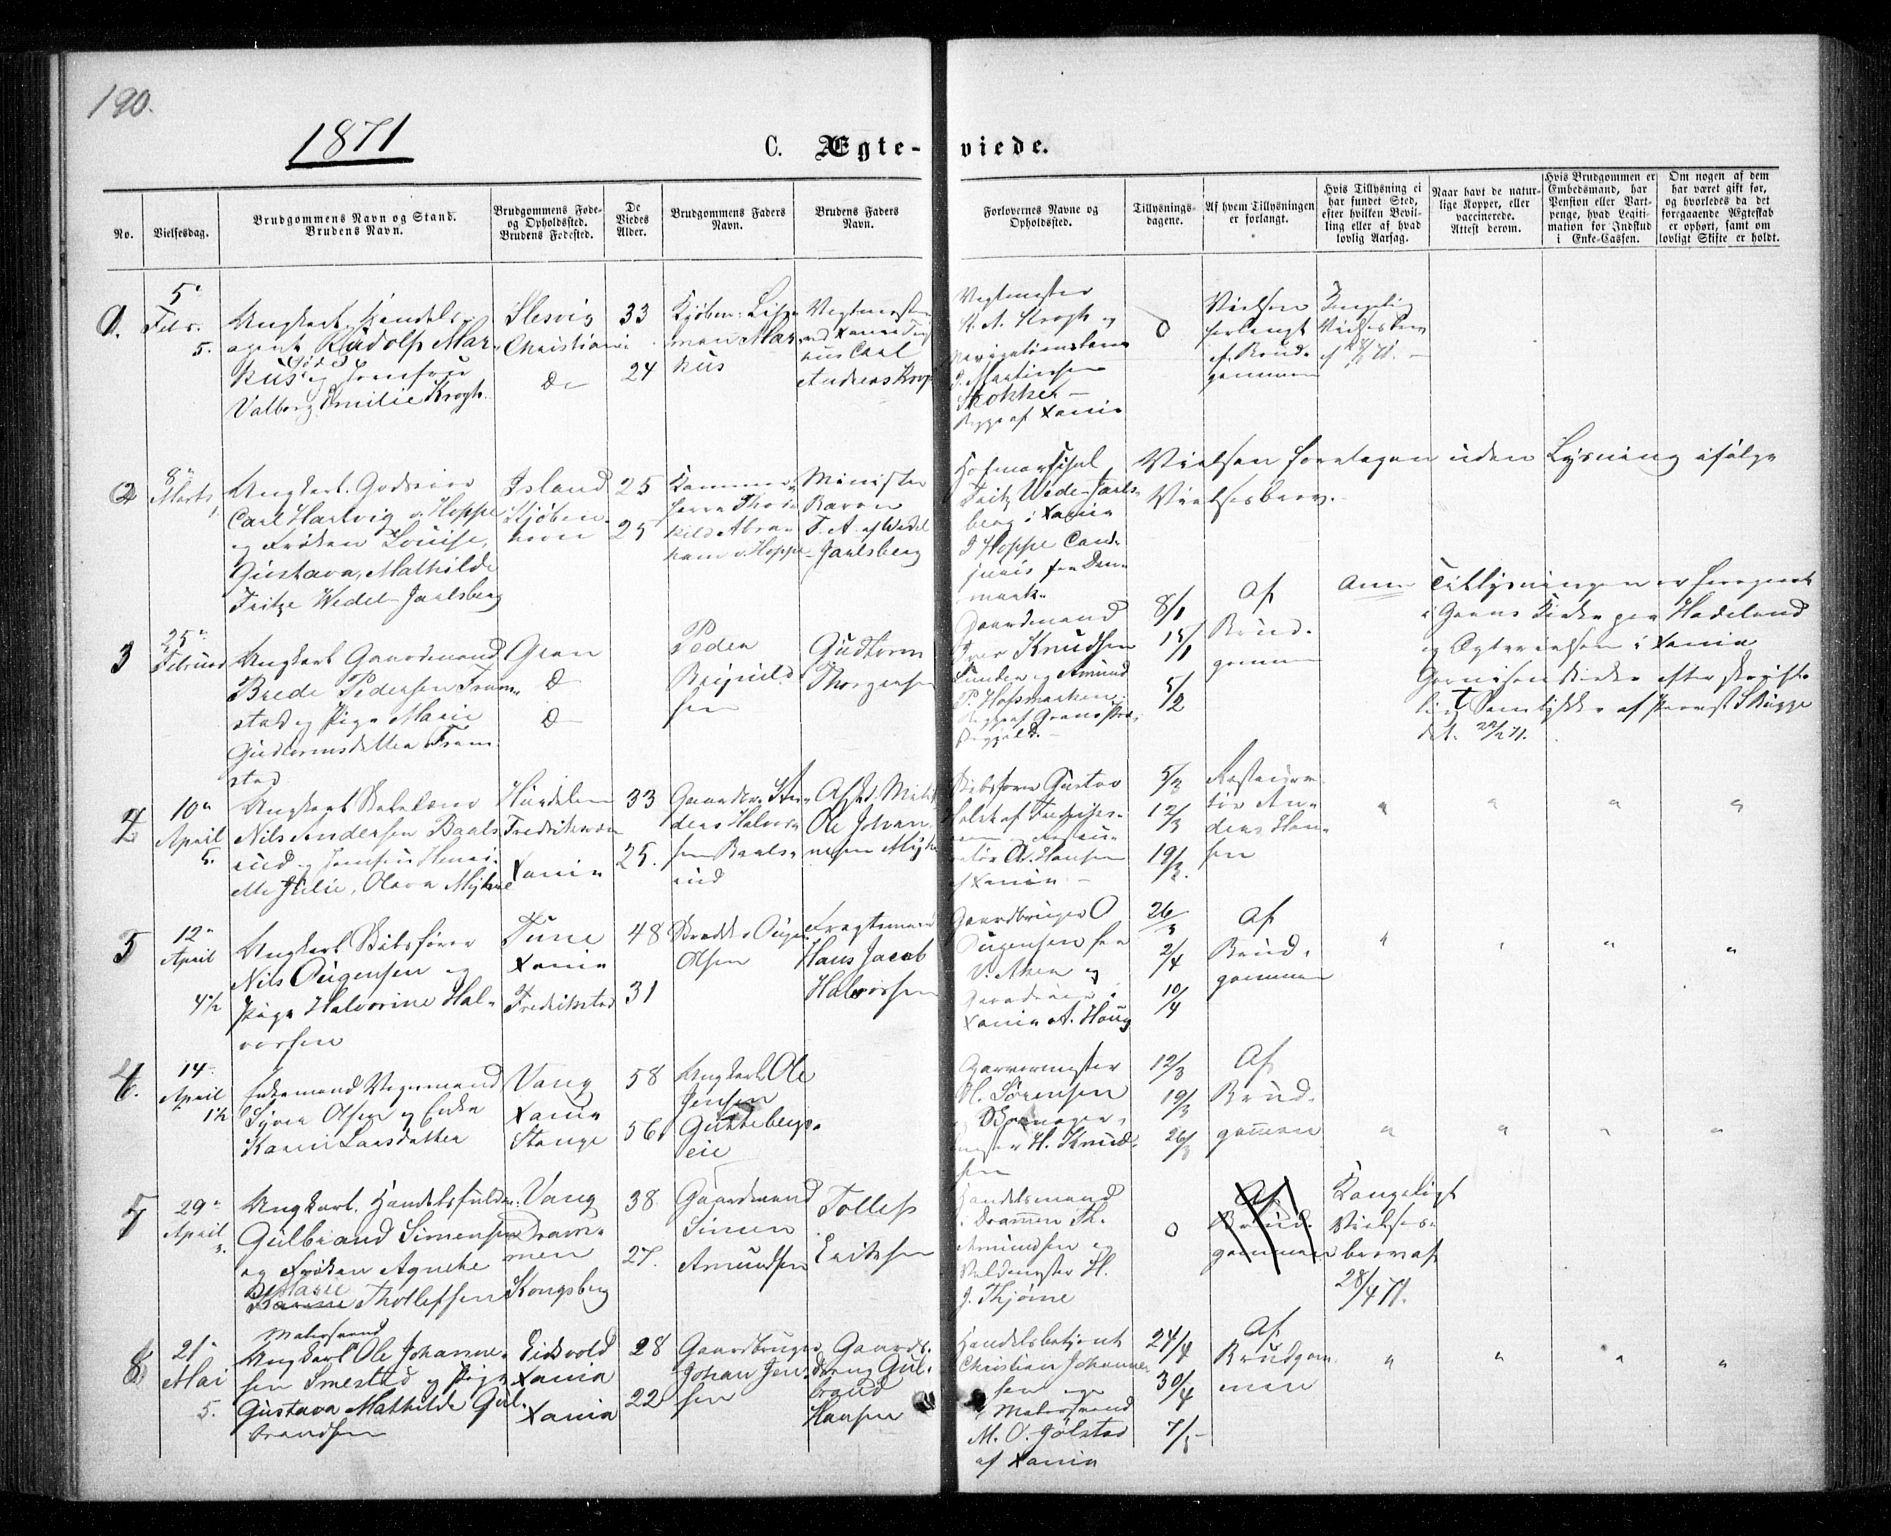 190.
1871
C. Ægte-viede.
No.
Vielsesdag.
Brudgommens Navn og Stand.
Brudens Navn.
Brudgommens Føde-
og Opholdssted.
Brudens Fødested.
De
Viedes
Alder.
Brudgommens Faders
Navn.
Brudens Faders
Navn.
Forlovernes Navne og
Opholdssted.
Tillysnings-
dagene.
Af hvem Tillysningen
er forlangt.
Hvis Tillysning ei
har fundet Sted,
efter hvilken Bevil-
ling eller af hvad
lovlig Aarsag.
Naar havt de natur-
lige Kopper, eller
vaccinerede.
Attest derom.
Hvis Brudgommen er
Embedsmand, har
Pension eller Vart-
penge, hvad Legiti-
mation for Indskud
i Enke-Cassen.
Om nogen af dem
har været gift før,
og hvorledes da det
foregaaende Ægteskab
er ophørt, samt om
lovligt Skifte er holdt.
1.
5
Febr.
5.
Ungkarl, Handels-
agent Rudolf Mar-
kus og Jomfru
Valborg Emilie Krogh.
Slesvig
Christiania
Do
33
24
Kjøbm. Lip
man Mar
kus
Carl
Andreas Krogh
Vegtmester
A. Krogh og
J. Martinsen
Stokker
Begge af Xania
0
Vielsen
forlangt
af Brud-
gommen
Kongelig
Vielsesbrev
2
8
Marts
Ungkarl. Godseier
Carl Hartvig v. Hoppe
og Frøken Louise,
Gustava, Mathilde
Fritze Wedel-Jarlsberg
Island
Kjøben-
havn
25
25
Kammer-
herre Thor
kild Abra-
ham v. Hoppe
Minister
Baron
F. A. af Wedel
Jarlsberg
Hofmarschal
Fritz Wedel-Jarls-
berg i Xania
J Hoppe Cand
juris fra Dan-
mark
Vielsen foretagen uden Lysning ifølge
Vielsesbrev.
3
25
Februar
Ungkarl Gaardmand
Brede Pedersen Fram-
stad og Pige Marie
Guttormsdatter Fram-
stad
Gran
D
D
Peder
Guttorm
Thorgersen
Gaardmand
Iver Knudsen
og Amund
P. Hofsmarken
8/1
15/1
5/2
Af
Brud-
gommen
Anm
Tillysningen er foregaaet
i Grans Kirke paa Hadeland
og Ægtevielsen i Xania
Garnisons Kirke efter skrift-
ligt Samtykke af Provst Bugge
4
10
April
5.
Ungkarl
Nils Andersen Baals
rud og Jomfru Henri-
ette Julie, Olava
Hurdalen
Fredriksværn
Xania
33
25.
Gaardbr. An-
ders Halvor-
sen Baals-
rud
Ole Johan
nesen
Skibsfører Gustav
Holst af
A. Hansen
af Xania
5/3
12/3
19/3
Restaura-
tør An-
ders Han-
sen
"
"
"
"
5
12
April
4½
Ungkarl Skibsfører
Nils Augensen og
Pige Halvorine Hal-
vorsen
Tune
Xania
Fredrikstad
48
31
Olsen
Fragtemand
Hans Jacob
Halvorsen
Gaardbruger O
Augensen fra
V. Aker og
Gaardeier i
Xania A. Haug
26/3
2/4
10/4
Af
Brud-
gommen
"
"
"
"
6.
14
April
1½
Enkemand Vognmand
Syver Olsen og Enke
Karen Larsdatter
Vang
Xania
Stange
58
56
Ungkarl Ole
Jensen
Gukkebergs-
eie
Garvermester
H. Sørensen
H. Knud-
sen
12/3
19/3
26/3
Af
Brud-
gommen
"
"
"
"
7
29
April
Ungkarl. Handelsfuldm.
Gulbrand Simensen
og Frøken Agnethe
Marie
Thollefsen
Vang
Dram-
men
Kongsberg
38
27.
Gaardmand
Simen
Amundsen
Tollef
Eriksen
Handelsmand
i Drammen Th.
Amundsen og
H.
J. Thjøme
0
Af
Brud-
gommen
Kongeligt
Vielses-
brev af
28/4 71.
8
21
Mai
5.
Matersvend
Ungkarl Ole Johanne-
sen Smestad og Pige
Gustava Mathilde Gul-
brandsen
Eidsvold
Xania
Xania
28
22
Gaardbruger
Johan Jen-
sen
Gaards-
dreng Gul-
brand
Hansen
Handelsbetjent
Christian Johanne-
sen og
Malersvend
M. O. Gjølstad
af Xania
24/4
30/4
7/5
Af
Brudgom
men
"
"
"
"